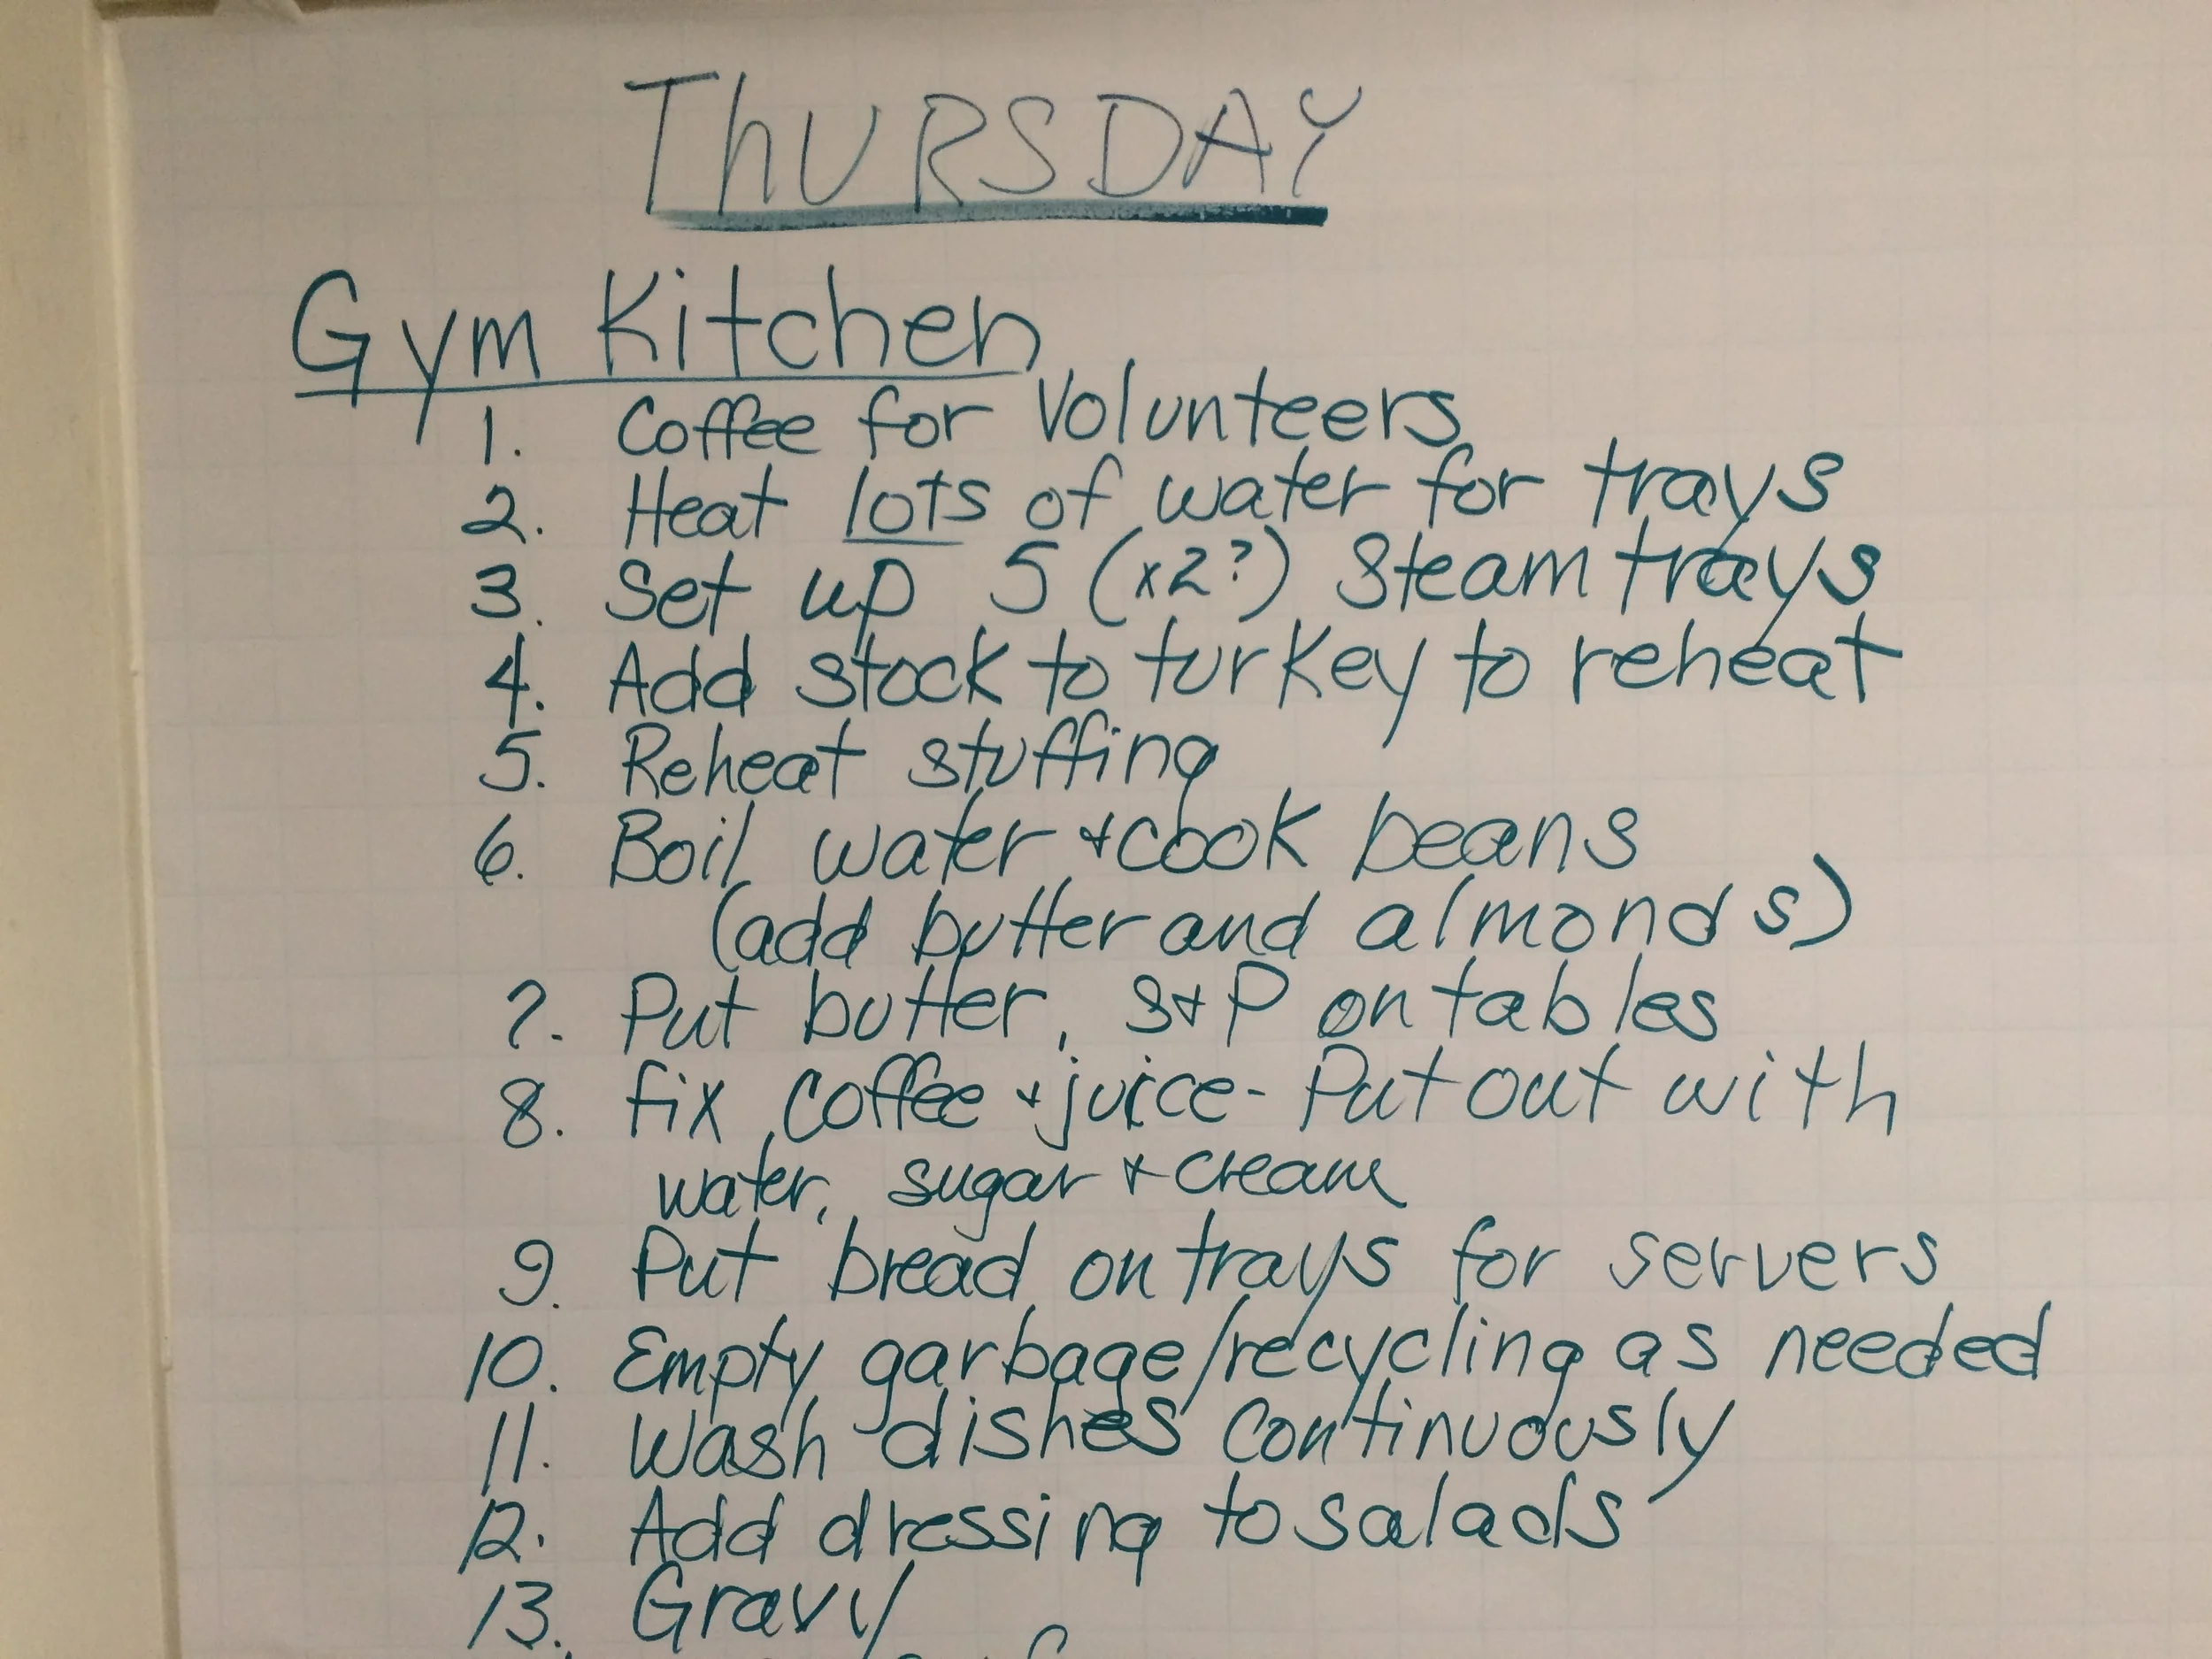 ThURSDAY
Gym Kitchen
1. Coffee for Volunteers
2. Heat lots of water for trays
3. Set up 5 (x2?) Steam trays
4. Add stock to turkey to reheat
5. Reheat stuffing
6. Boil water + cook beans
(add butter and almonds)
7. Put butter, S+P on tables
8. fix coffee + juice - Put out with
water, sugar + cream
9. Put bread on trays for servers
10. Empty garbage/recycling as needed
11. Wash dishes continuously
12. Add dressing to salads
13. Gravy